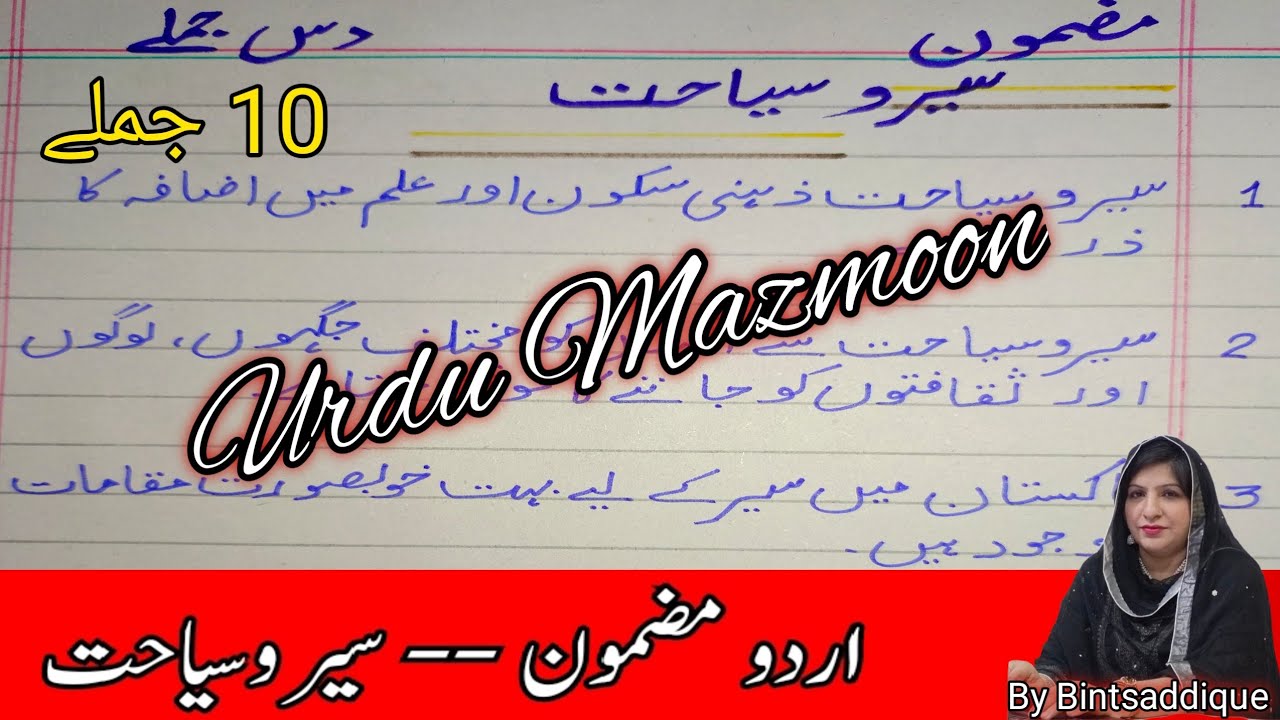 مضمون
دس جملے
سیر و سیاحت
10 جملے
1 سیر و سیاحت ذہنی سکون اور علم میں اضافہ کا
2 سیر و سیاحت سے مختلف جگہوں، لوگوں
اور ثقافتوں کو جاننے کا
3 میں سیر کے لیے بہت خوبصورت مقامات
ہیں۔
Urdu Mazmoon
اردو مضمون -- سیر و سیاحت
By Bintsaddique